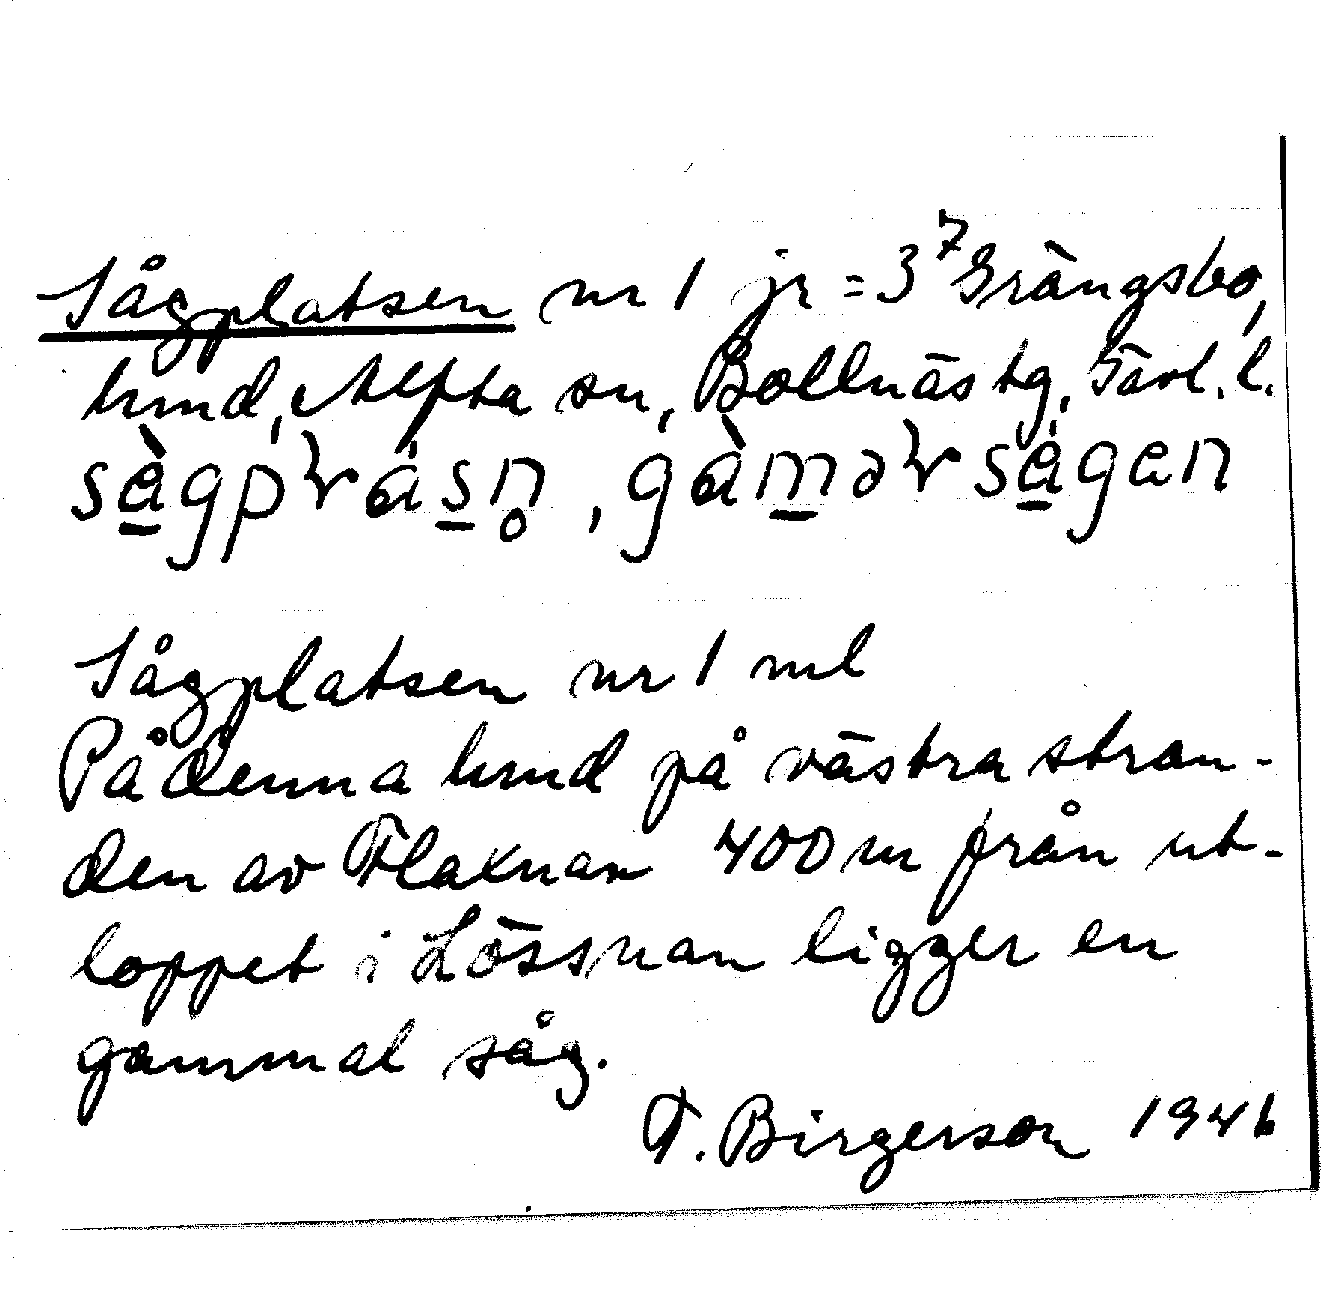 Sågplatsen nr 1 jr = 3⁷ Grängsbo,
hmd, Alfta sn, Bollnäs tg, Gävl. l.
Sågplatsen nr 1 ml
På denna hmd på västra stran-
den av Flaxnan 400 m från ut-
loppet i Lössnan ligger en
gammal såg.
T. Birgerson 1946